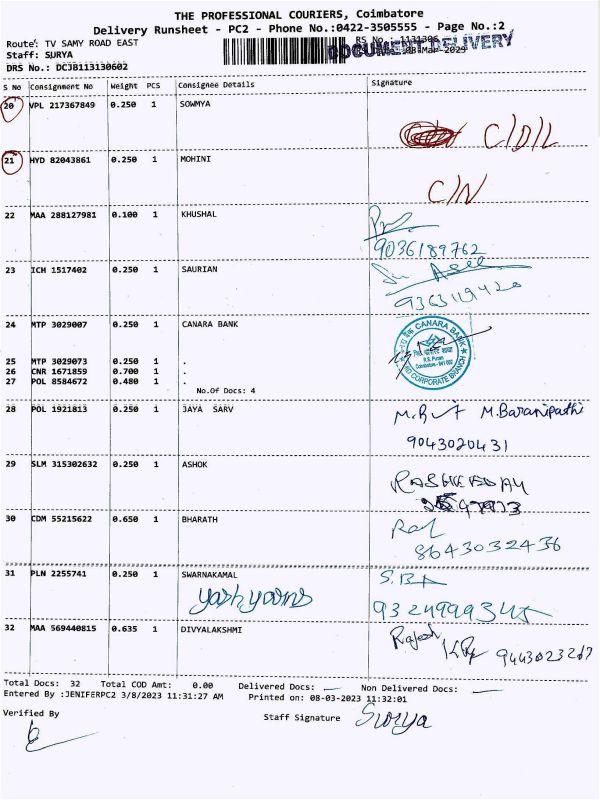 THE PROFESSIONAL COURIERS, Coimbatore
Delivery Runsheet - PC2 - Phone No.:0422-3505555 - Page No.:2
Route: TV SAMY ROAD EAST
RS No.: 1131306
DOCUMENT DELIVERY
Staff: SURYA
DRS No.: DCJB113130602
S No Consignment No Weight PCS Consignee Details Signature
20 VPL 217367849 0.250 1 SOWMYA
C/D/L
21 HYD 82043861 0.250 1 MOHINI
C/N
22 MAA 288127981 0.100 1 KHUSHAL
9036189762
23 ICH 1517402 0.250 1 SAURIAN
9363119420
24 MTP 3029007 0.250 1 CANARA BANK
CANARA BANK
R.S. Puram
Coimbatore - 641 002
CORPORATE BRANCH
25 MTP 3029073 0.250 1 .
26 CNR 1671859 0.700 1 .
27 POL 8584672 0.480 1 .
No.Of Docs: 4
28 POL 1921813 0.250 1 JAYA SARV
M. Baranipathi
9043020431
29 SLM 315302632 0.250 1 ASHOK
30 CDM 55215622 0.650 1 BHARATH
8643032436
31 PLN 2255741 0.250 1 SWARNAKAMAL
S.BA
yashyarns
32 MAA 569440815 0.635 1 DIVYALAKSHMI
Rajesh
9443023267
Total Docs: 32 Total COD Amt: 0.00 Delivered Docs: Non Delivered Docs:
Entered By :JENIFERPC2 3/8/2023 11:31:27 AM Printed on: 08-03-2023 11:32:01
Verified By
Staff Signature Surya